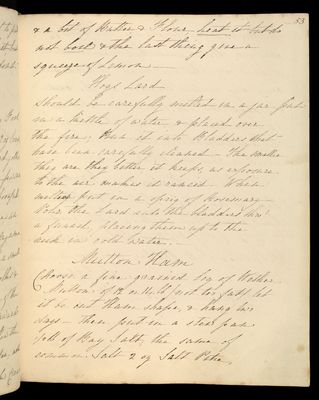 53
& a bit of Butter & Flour heat it but do
not boil & the last thing give a
squeeze of Lemon —
Hogs Lard
Should be carefully melted in a jar put
in a kettle of water & placed over
the fire; Run it into Bladders that
have been carefully cleaned — The smaller
they are they better it keeps, as exposure
to the air makes it rancid — When
melting put in a sprig of Rosemary —
Pour the Lard into the bladders thro'
a funnel, placing them up to the
neck in cold Water. —
Mutton Ham
Choose a fine grained leg of Wether
Mutton of 12 or 14 lb (not too fat) let
it be cut Ham shape, & hang two
days — then put in a stew pan
½lb of Bay Salt, the same of
common Salt 2 oz Salt Petre